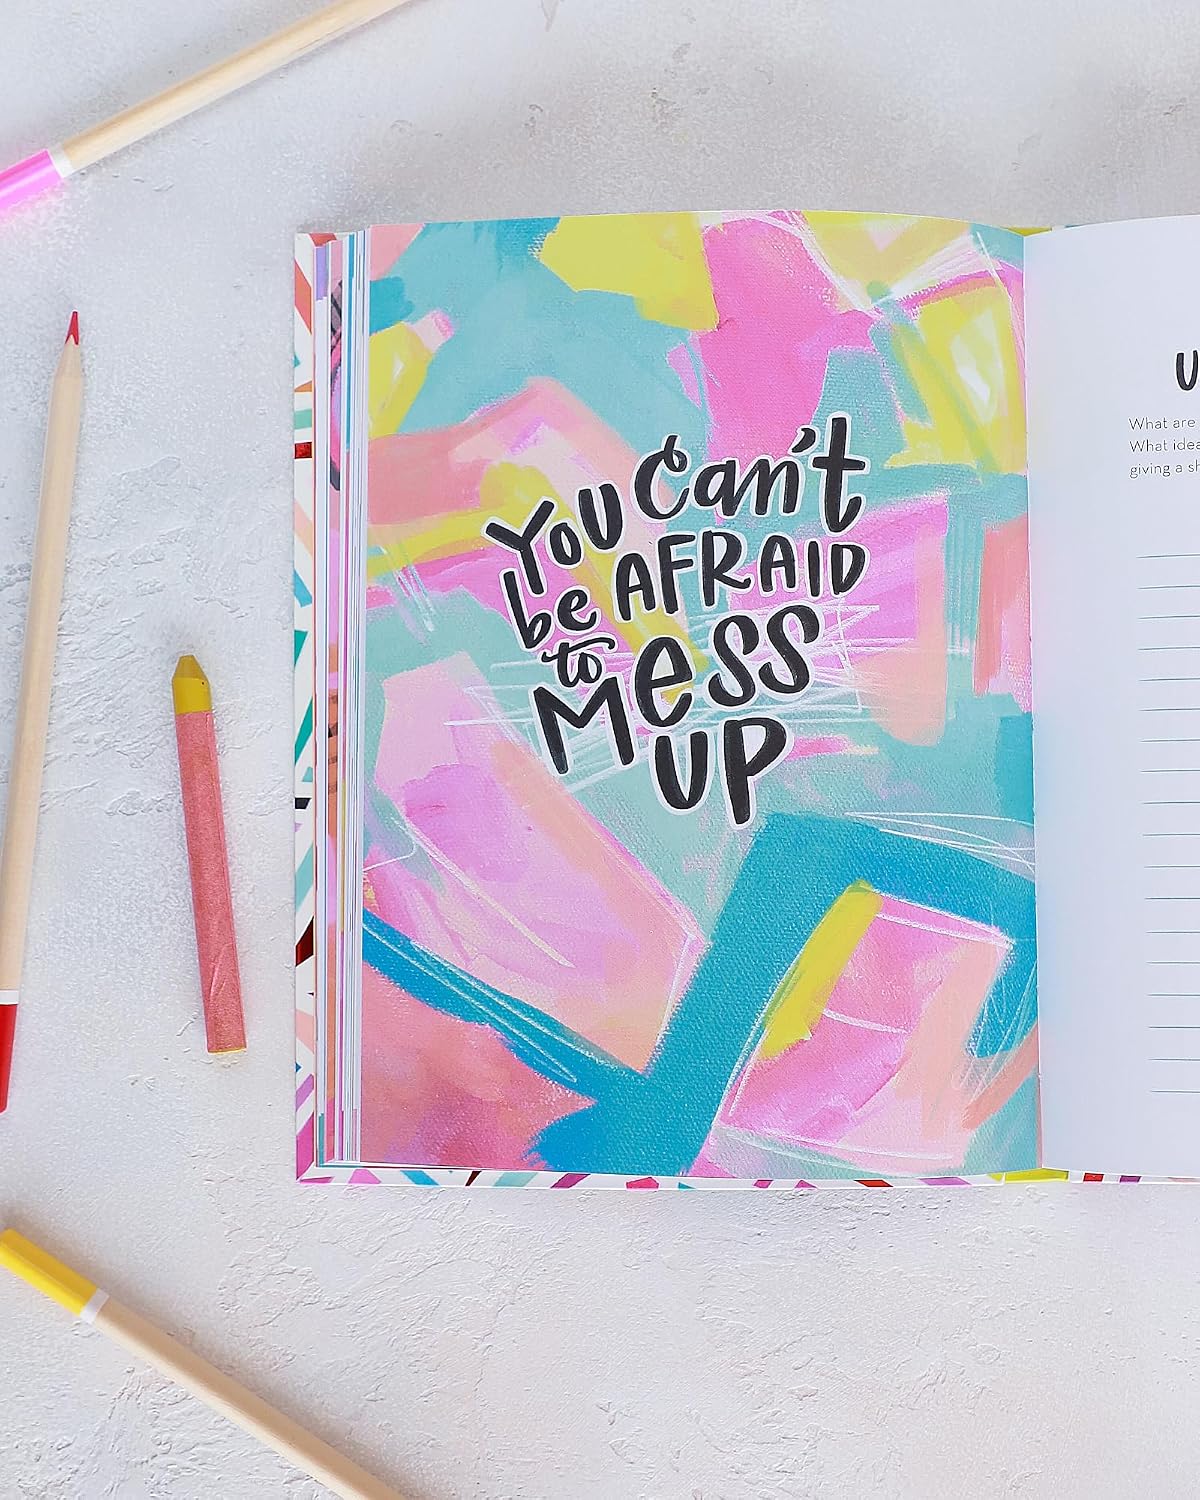 You can't
be AFRAID
to Mess
UP
What are
What
giving a